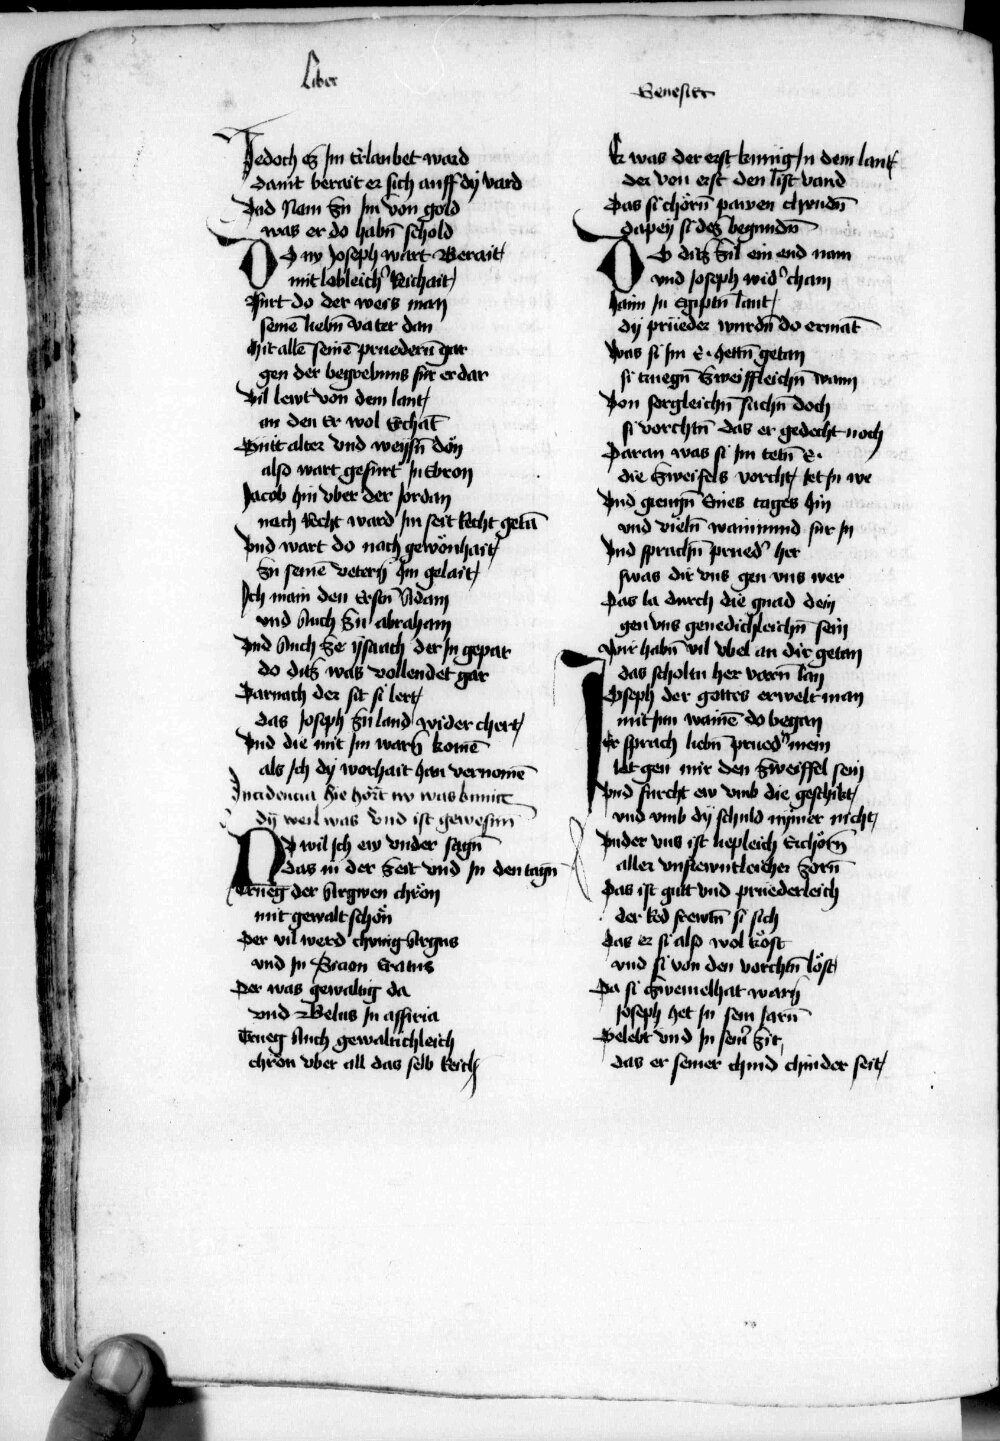 Liber
Genesis
Jedoch ez Im erlaubet ward
damit berait er sich auff dy vard
Vnd Nam zu Im von gold
was er do habn̄ schold
Do nv Joseph wart Berait
mit lobleichr Reichait
Furt do der weis man
seinē liebn̄ vater dan
Mit allē seinē pruedern̄ gar
gen der begrebnus für er dar
Vil lewt von dem lant
an den Er wol Erchāt
Guit alter vnd weysn̄ don
also wart gefurt In Ebron
Jacob hin vber der Jordan
nach Recht ward Im seit Recht getā
Vnd wart do nach gewonhait
zu seinē vetern̄ hin gelait
Ich main den Ersn̄ Adam
vnd Auch zu abraham
Vnd Auch ze ysaach der In gepar
do ditz was vollendet gar
Darnach der sit si lert
das Joseph zu land wider chert
Vnd die mit Im warn̄ komē
als Ich dy worhait han vernomē
Incidencia hie hört nv was kunice
dy weil was vnd ist gewesnn̄
Nv wil Ich ew vnder sagn̄
das in der zeit vnd In den tagn̄
Trueg der Argiven chron
mit gewalt schon
Der vil werd chunig Argus
vnd In Sicion Eratus
Der was gewaltig da
vnd Belus In assiria
Trueg Auch gewaltichleich
chron vber all das selb Reich
Er was der erst kunig In dem lant
der von erst den list vand
Das si chorn̄ pawen chundn̄
dapey si dez begundn̄
Do ditz zil ein end nam
vnd Joseph widr cham
haim In Egiptn̄ lant
dy prueder wurdn̄ do ermāt
Was si Im E. hettn̄ getan
si truegn̄ zweiffleichn̄ wann
Von sorgleichn̄ sachn̄ doch
si vorchtn̄ das er gedecht noch
Daran was si Im tetn̄ E.
die zweifels vorcht tet In we
Vnd giengn̄ Eines tages hin
vnd vieln̄ wainnund für In
Vnd sprachn̄ pruedr her
swas dir vns gen vns wer
Das la durch die gnad dein
gen vns genedichleichn̄ sein
Wir habn̄ vil vbel an dir getan
das scholtu her varn̄ lan
Joseph der gottes erwelt man
mit Inn wainē do began
Er sprach liebn̄ pruedr mein
lat gen mir den zweiffel sein
Vnd furcht ew vmb die geschikt
vnd vmb dy schuld nymer nicht
Vnder vns ist liepleich Erchorn̄
aller vnfrewntleicher zorn̄
Das ist gutt vnd pruederleich
der Red frewtn̄ si sich
das er si also wol kost
vnd si von den vorchtn̄ löst
Da si zwemelhat warn̄
Joseph het In sein Jarn̄
Gelebt vnd In seinr zit
das er seiner chind chinder seit